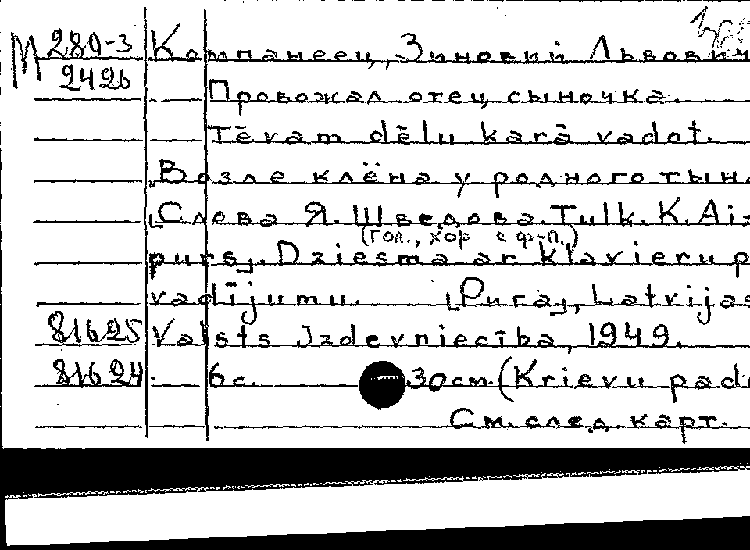 М 280-3
2426
Компанеец, Зиновий Львович
Провожал отец сыночка.
Tēvam dēlu karā vadot.
„Возле клёна у родного тына
[Слова Я. Шведова. Tulk. K. Aiz-
(гол., хор с ф-п.)
purs]. Dziesma ar klavieru pa-
vadījumu. [Rīgā], Latvijas
81625 Valsts Izdevniecība, 1949.
81624 6 с. 30 см. (Krievu pad
См. след. карт.